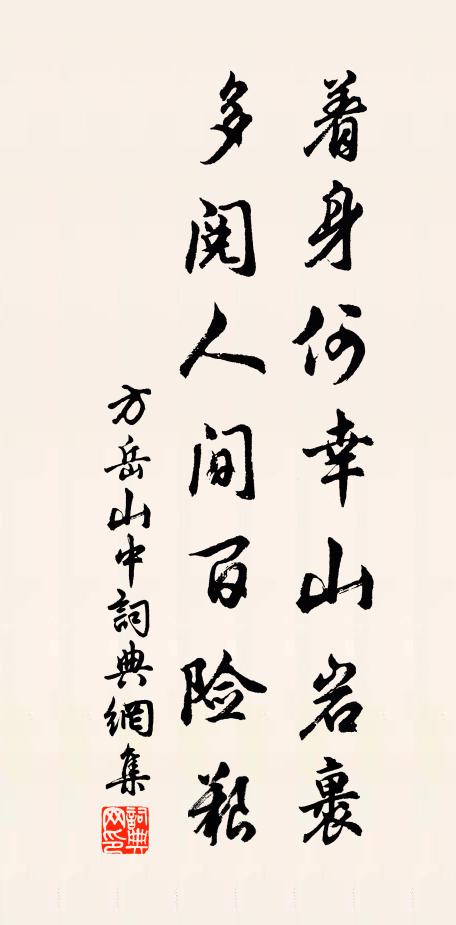 着身何幸山岩裏
多閱人間百险艱
方岳山中詞典網集
詞典網印